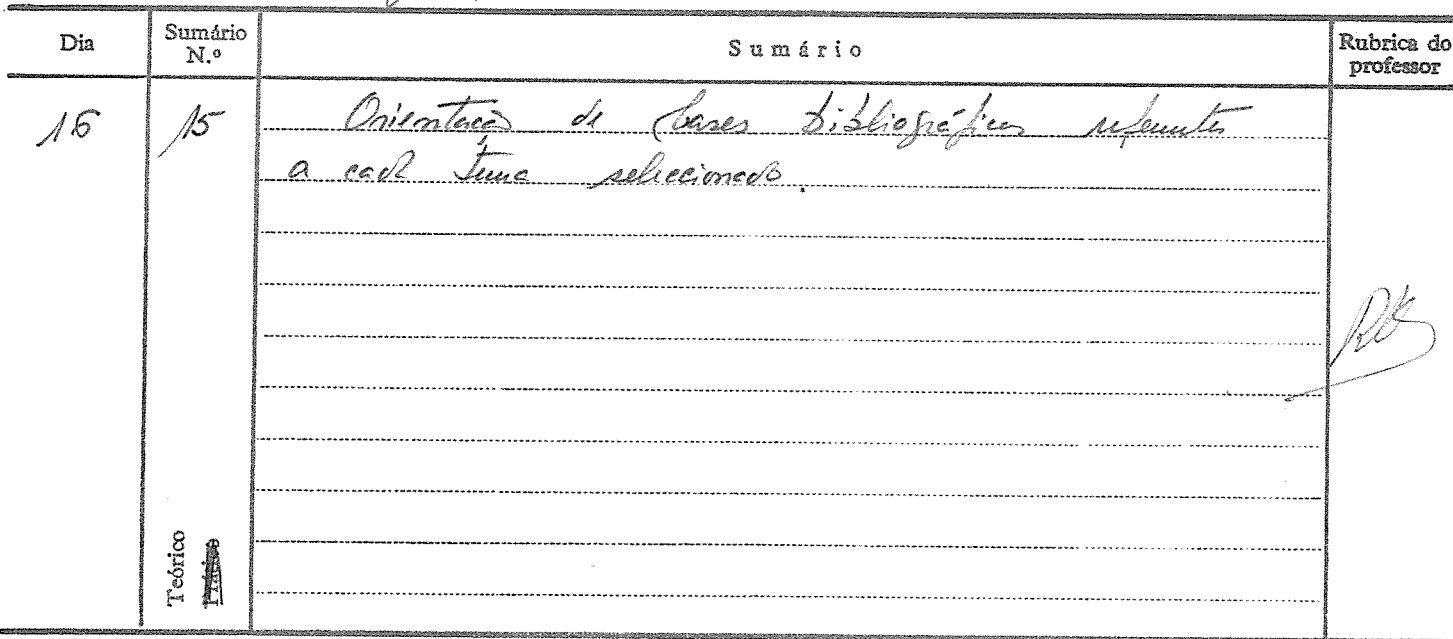 Dia
Sumário N.º
Sumário
Rubrica do professor
16
15
Orientação de bases bibliográficas referentes
a cada tema seleccionado.
Teórico